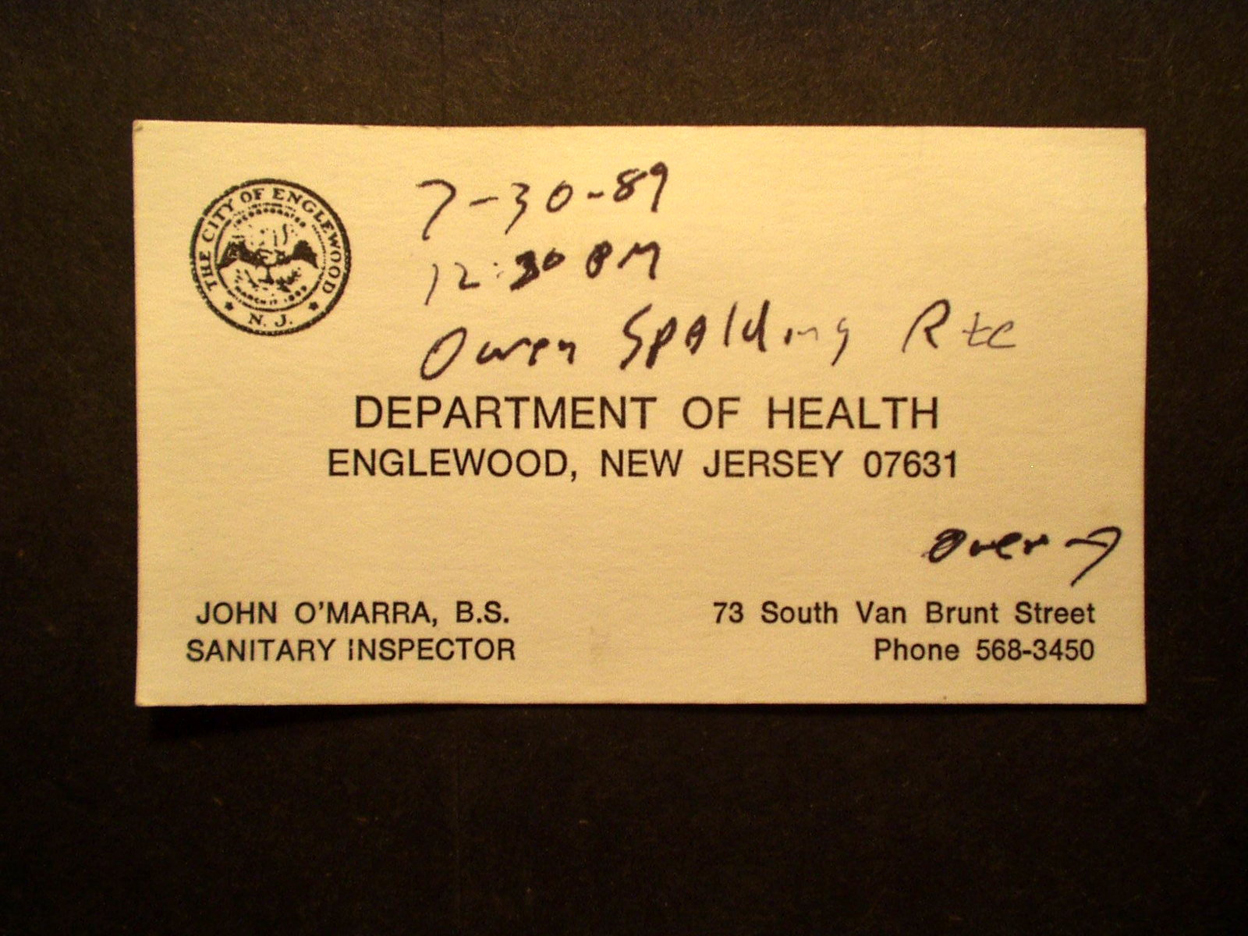 THE CITY OF ENGLEWOOD
N. J.
7-30-89
12:30 PM
Owen Spalding Rte
DEPARTMENT OF HEALTH
ENGLEWOOD, NEW JERSEY 07631
over →
JOHN O'MARRA, B.S.
SANITARY INSPECTOR
73 South Van Brunt Street
Phone 568-3450